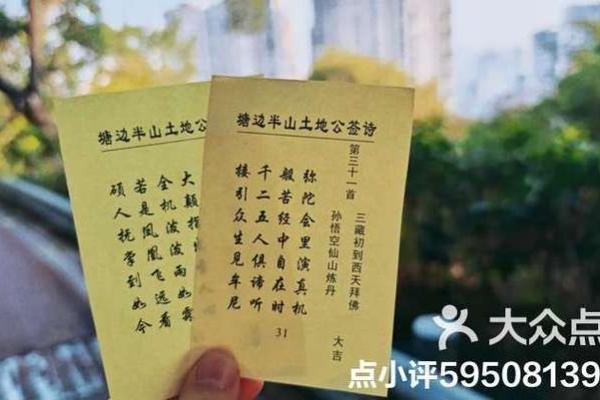 塘边半山土地公
大颠指
全机波波雨如雾
若是凤凰飞远看
硕人抚掌到如今
塘边半山土地公签诗
第三十一首
三藏初到西天拜佛
孙悟空仙山炼丹
大吉
弥陀会里演真机
般苦经中自在时
千二五人俱谛听
接引众生见牟尼
31
大众点
点小评59508139